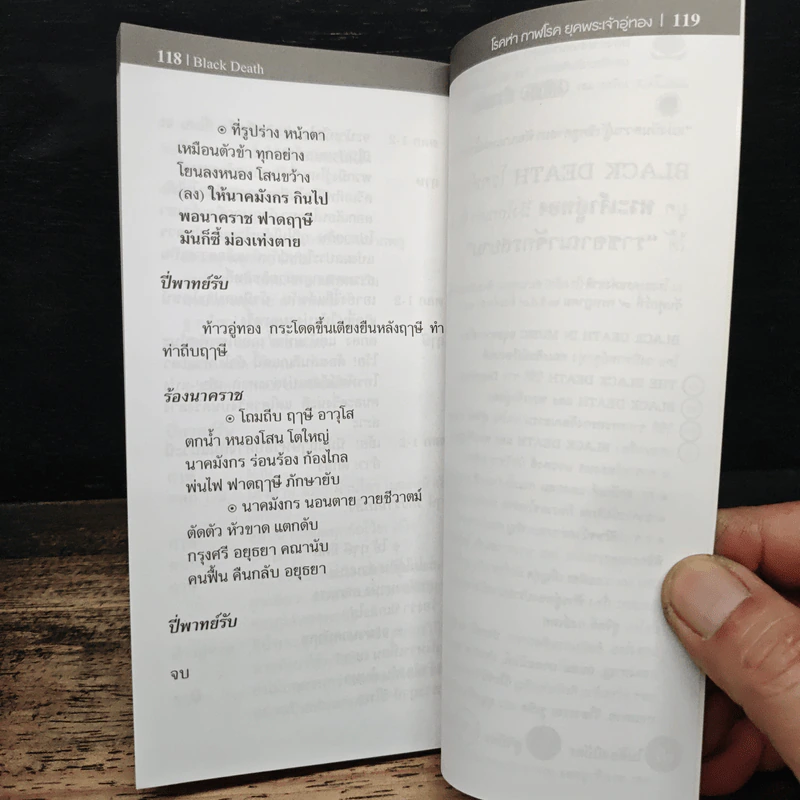 118 | Black Death
๏ ที่รูปร่าง หน้าตา
เหมือนตัวข้า ทุกอย่าง
โยนลงหนอง โสนขว้าง
(ลง) ให้นาคมังกร กินไป
พอนาคราช ฟาดฤาษี
มันก็ซี้ ม่องเท่งตาย
ปี่พาทย์รับ
ท้าวอู่ทอง กระโดดขึ้นเตียงยืนหลังฤาษี ทำ
ท่าถีบฤาษี
ร้องนาคราช
๏ โถมถีบ ฤาษี อาวุโส
ตกน้ำ หนองโสน โตใหญ่
นาคมังกร ร่อนร้อง ก้องไกล
พ่นไฟ ฟาดฤาษี ภักษายับ
๏ นาคมังกร นอนตาย วายชีวาตม์
ตัดตัว หัวขาด แตกดับ
กรุงศรี อยุธยา คณานับ
คนฟื้น คืนกลับ อยุธยา
ปี่พาทย์รับ
จบ
โรคห่า กาฬโรค ยุคพระเจ้าอู่ทอง | 119